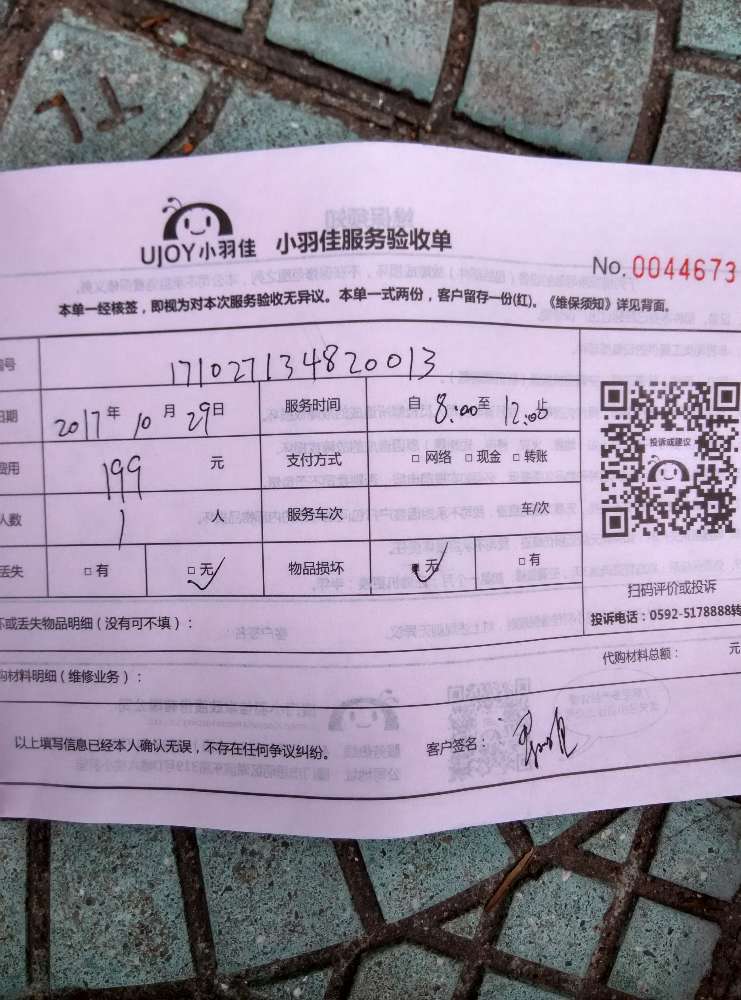 UJOY小羽佳 小羽佳服务验收单
No. 0044673
本单一经核签，即视为对本次服务验收无异议。本单一式两份，客户留存一份(红)。《维保须知》详见背面。
号 171027134820013
日期 2017年 10月 29日 服务时间 自 8:00至 12:00止
费用 199 元 支付方式 □ 网络 □ 现金 □ 转账
人数 1 人 服务车次 车/次
丢失 □ 有 □ 无 物品损坏 □ 无 □ 有
投诉或建议
扫码评价或投诉
投诉电话：0592-5178888转
坏或丢失物品明细（没有可不填）：
代购材料总额： 元
购材料明细（维修业务）：
以上填写信息已经本人确认无误，不存在任何争议纠纷。 客户签名：